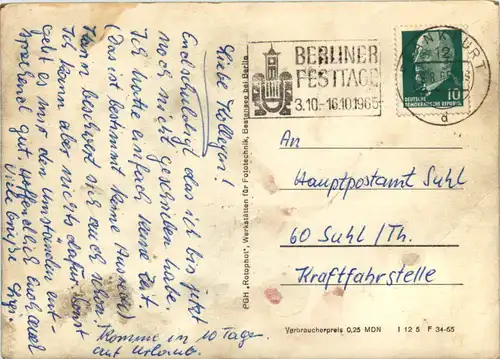 Liebe Kollegen!
Entschuldigt, das ich bis jetzt
noch nicht geschrieben habe.
Ich hatte einfach keine Zeit
(Das ist bestimmt keine Ausrede)
beschwert sich auch schon.
Ich kann aber nichts dafür. Sonst
geht es mir den Umständen ent-
sprechend gut. Hoffentlich Euch auch
Viele Grüße
Komme in 10 Tagen
auf Urlaub.
PGH „Rotophot", Werkstätten für Fototechnik, Bestensee bei Berlin
BERLINER
FESTTAGE
3.10.-16.10.1965
FRANKFURT
d
10
DEUTSCHE
DEMOKRATISCHE REPUBLIK
An
Hauptpostamt Suhl
60 Suhl/Th.
Kraftfahrstelle
Verbraucherpreis 0,25 MDN I 12 5 F 34-65